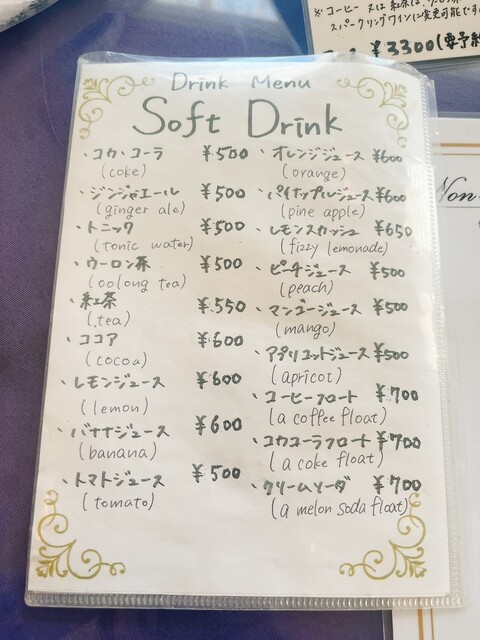 ※コーヒー
スパークリングワインに変更可能です
¥3300(要予約
Drink Menu
Soft Drink
・コカ・コーラ ¥500
(coke)
・ジンジャエール ¥500
(ginger ale)
・トニック ¥500
(tonic water)
・ウーロン茶 ¥500
(oolong tea)
・紅茶 ¥550
(tea)
・ココア ¥600
(cocoa)
・レモンジュース ¥600
(lemon)
・バナナジュース ¥600
(banana)
・トマトジュース ¥500
(tomato)
・オレンジジュース ¥600
(orange)
・パイナップルジュース ¥600
(pine apple)
・レモンスカッシュ ¥650
(fizzy lemonade)
・ピーチジュース ¥500
(peach)
・マンゴージュース ¥500
(mango)
・アプリコットジュース ¥500
(apricot)
・コーヒーフロート ¥700
(a coffee float)
・コカコーラフロート ¥700
(a coke float)
・クリームソーダ ¥700
(a melon soda float)
Non-